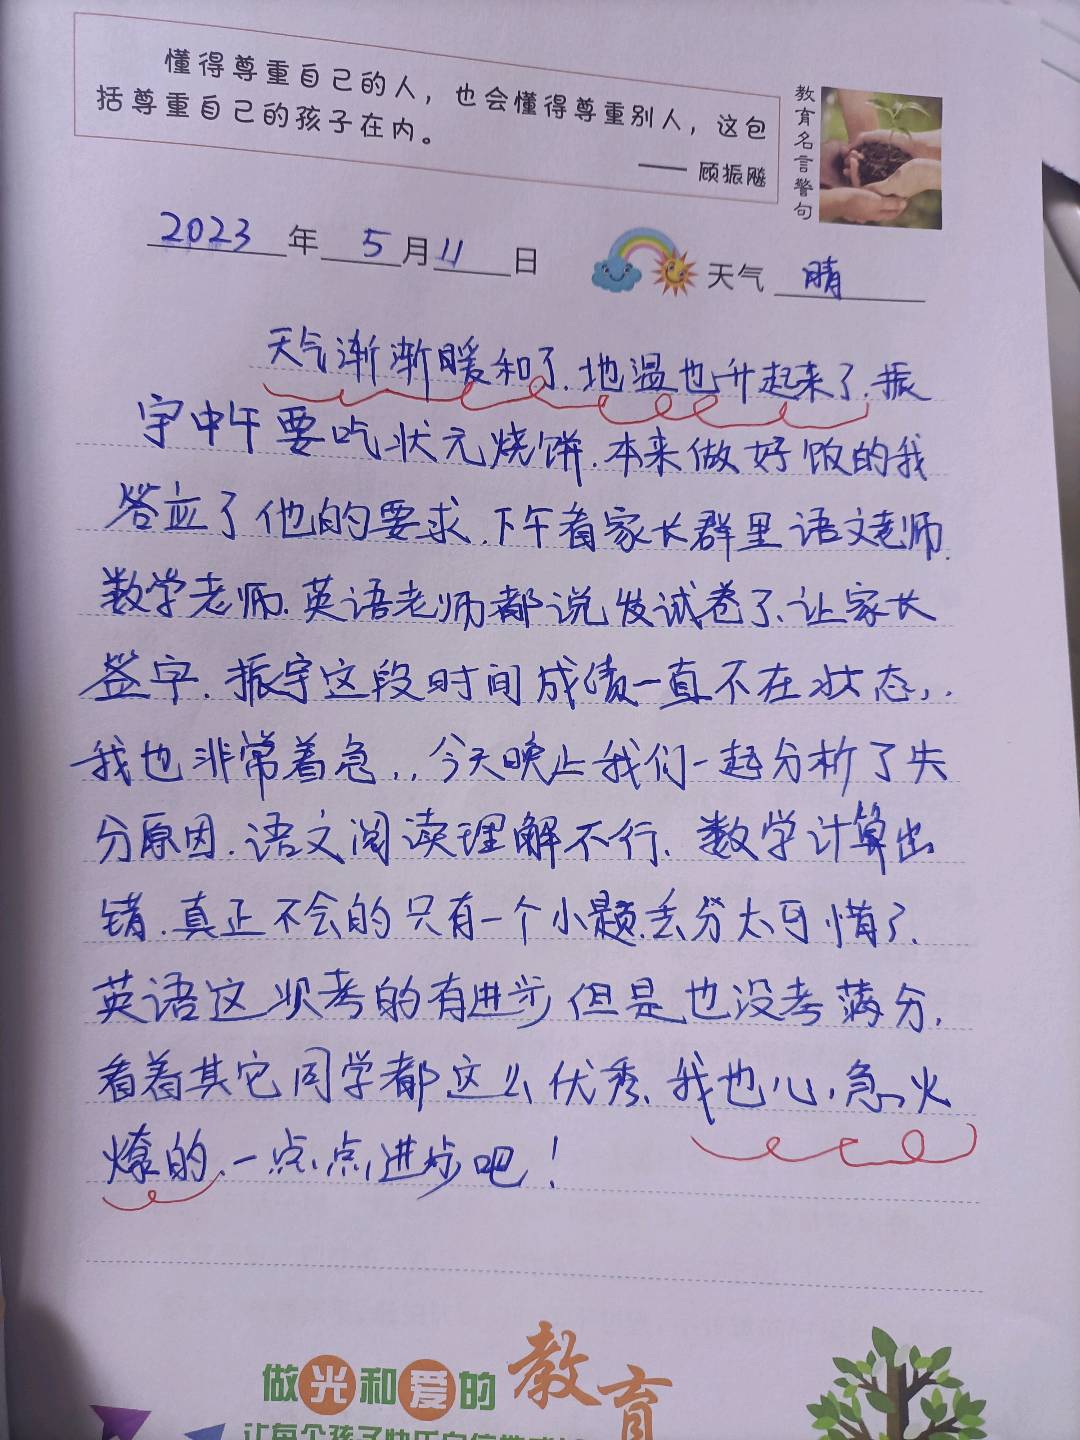 懂得尊重自己的人，也会懂得尊重别人，这包
括尊重自己的孩子在内。
—— 顾振飚
教育名言警句
2023年5月11日 天气 晴
天气渐渐暖和了.地温也升起来了.振
宇中午要吃状元烧饼.本来做好饭的我
答应了他的要求.下午看家长群里语文老师.
数学老师.英语老师都说发试卷了、让家长
签字.振宇这段时间成绩一直不在状态，.
我也非常着急，.今天晚上我们一起分析了失
分原因.语文阅读理解不行、数学计算出
错.真正不会的只有一个小题.丢分太可惜了.
英语这次考的有进步但是也没考满分.
看着其它同学都这么优秀、我也心急火
燎的.一点点进步吧！
做光和爱的教育
让每个孩子快乐自信